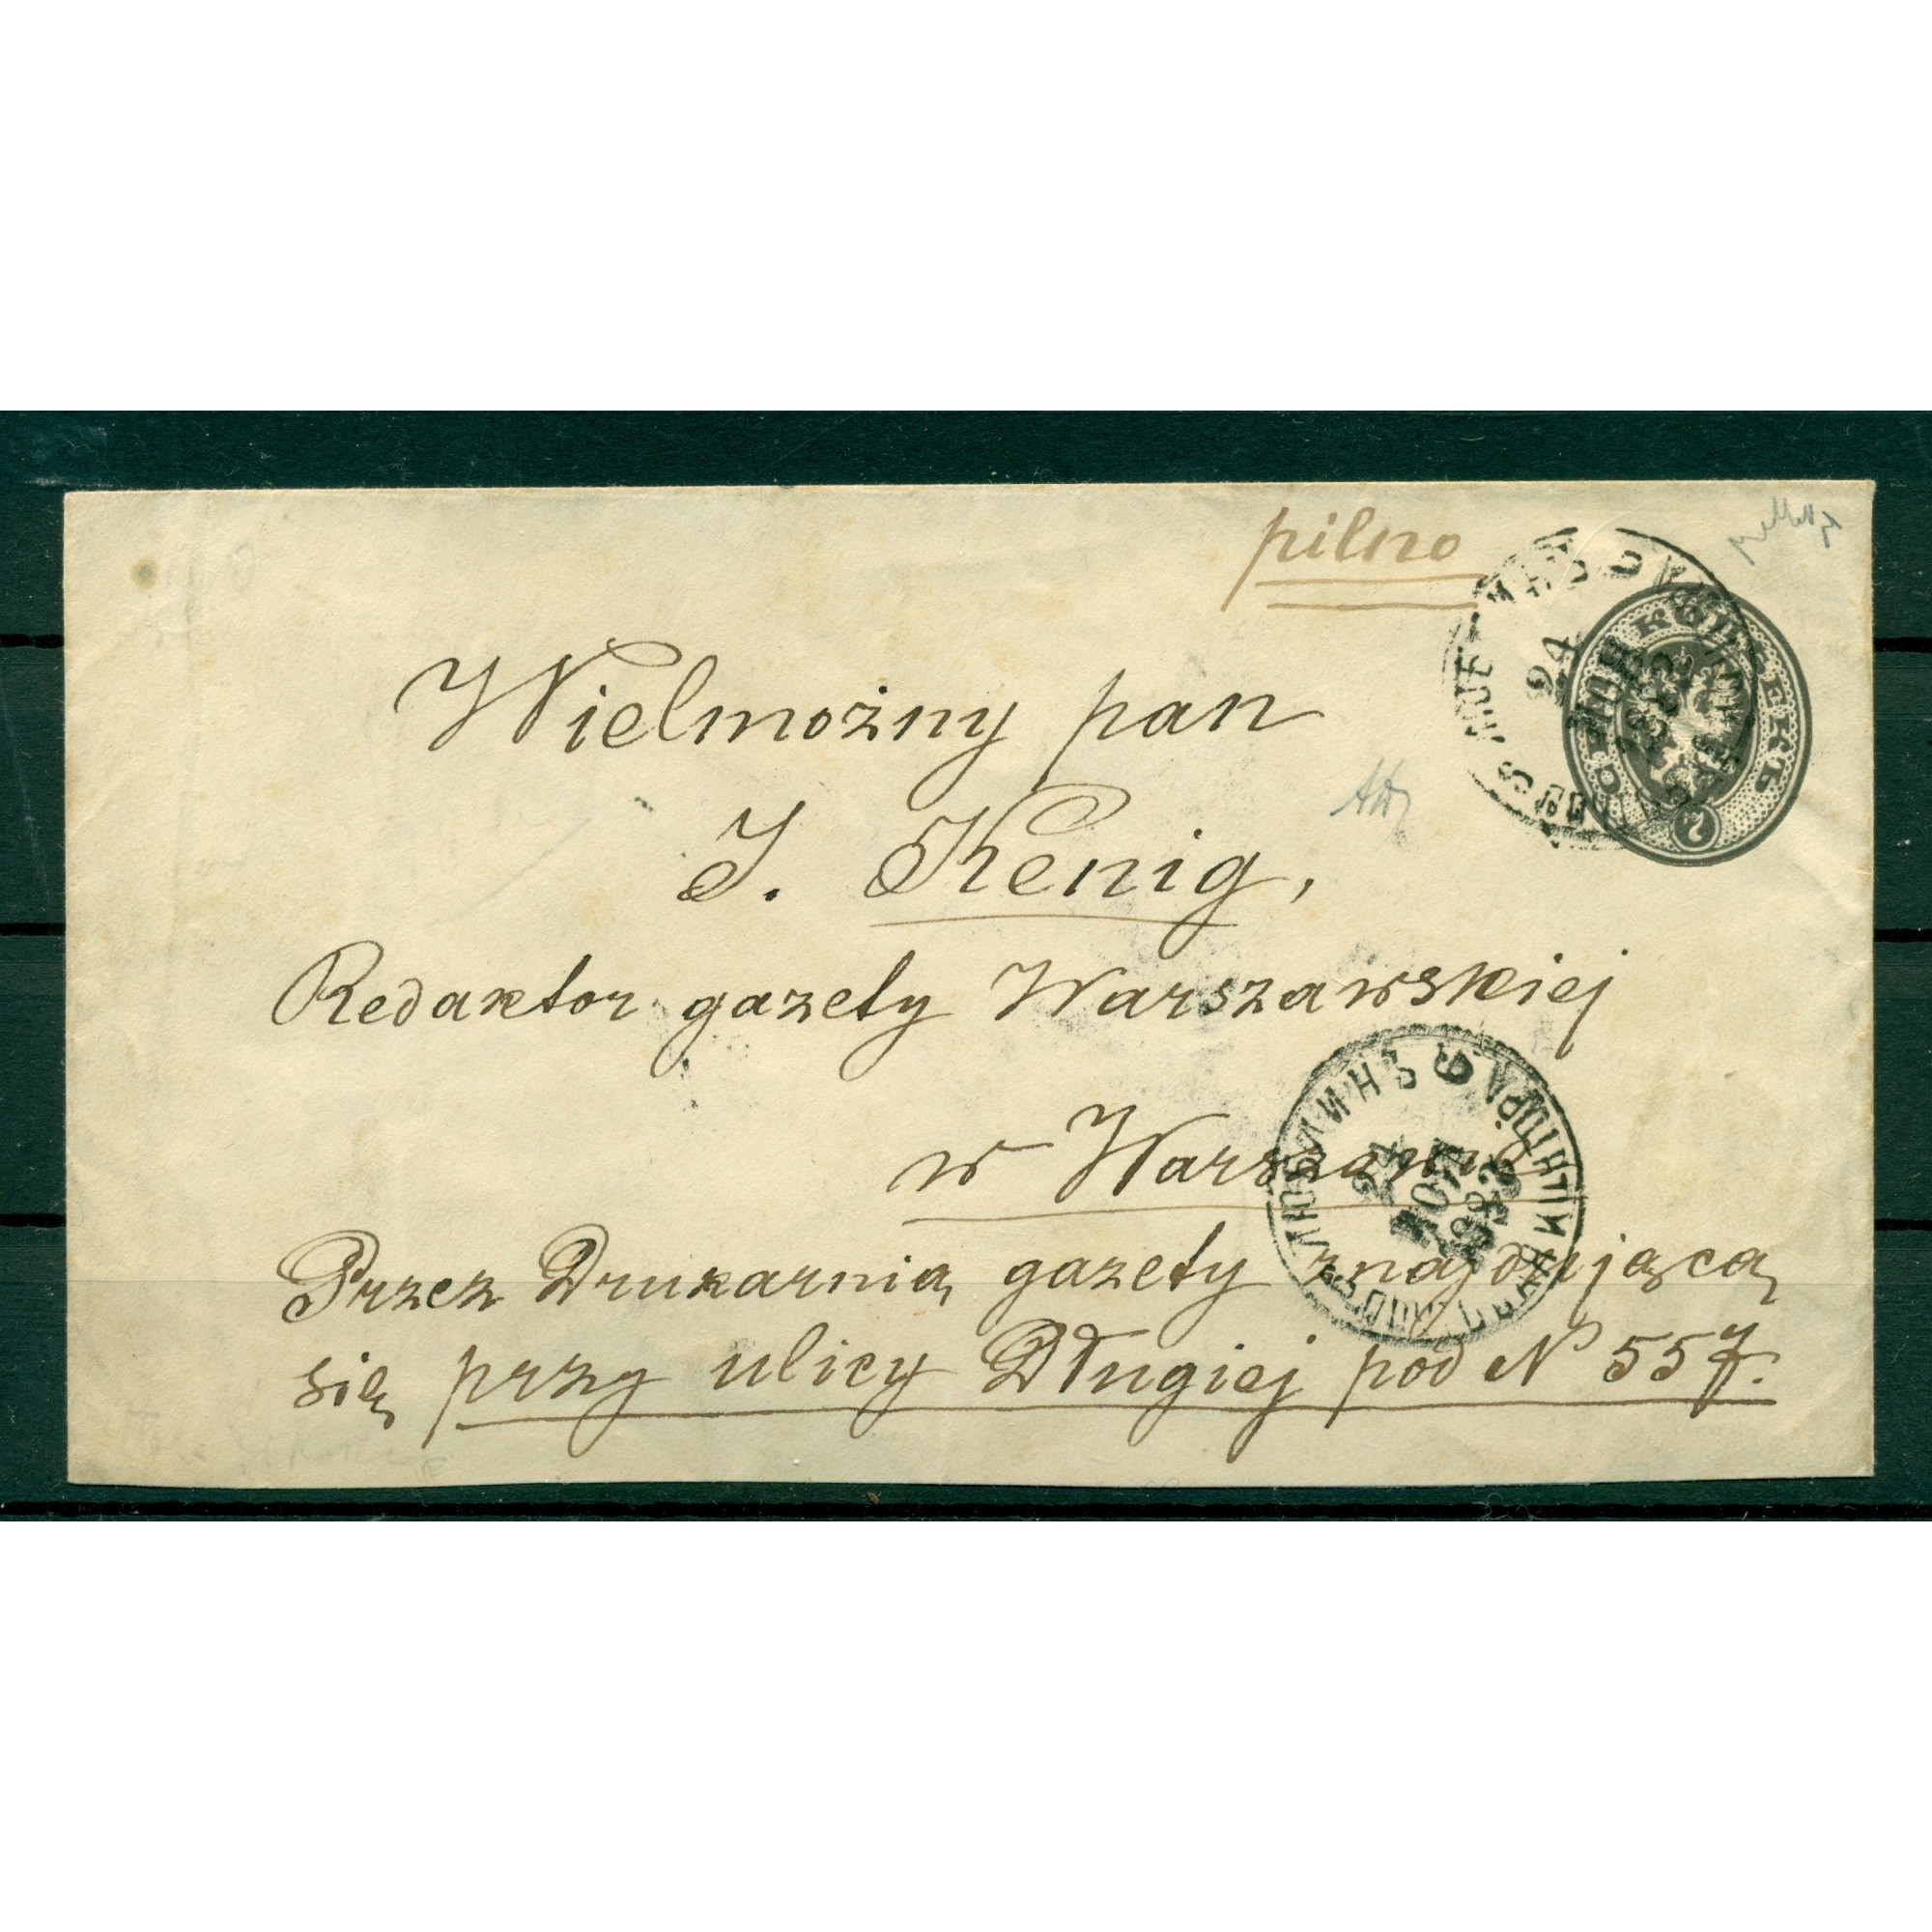 pilno
Wielmożny pan
J. Kenig,
Redaktor gazety Warszawskiej
w Warszawie
Przez Drukarnią gazety znajdującą
się przy ulicy Długiej pod N 557.
СЕМЬ КОПѢЕКЪ
7
24
1882
ЛЮБЛИНЪ
24
НОЯ
1882